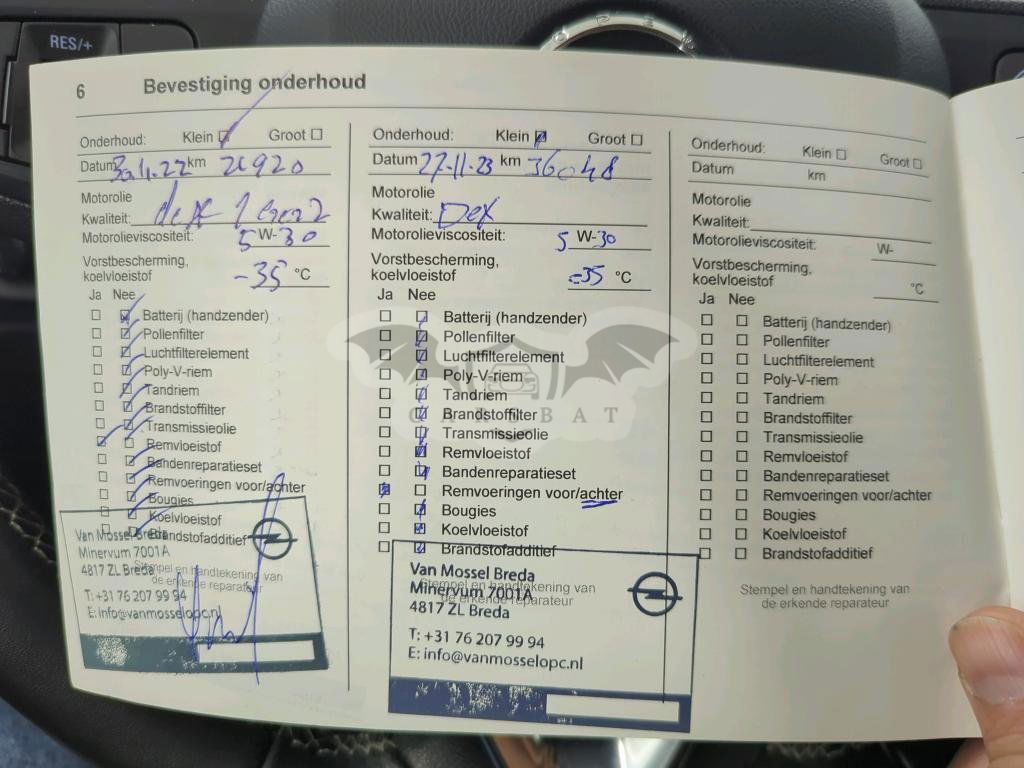 RES/+
6 Bevestiging onderhoud
Onderhoud: Klein Groot
Datum km 26920
Motorolie
Kwaliteit: dex 1 Gen 2
Motorolieviscositeit: 5 W-30
Vorstbescherming,
koelvloeistof -35 °C
Ja Nee
Batterij (handzender)
Pollenfilter
Luchtfilterelement
Poly-V-riem
Tandriem
Brandstoffilter
Transmissieolie
Remvloeistof
Bandenreparatieset
Remvoeringen voor/achter
Bougies
Koelvloeistof
Brandstofadditief
Stempel en handtekening van
de erkende reparateur
Van Mossel Breda
Minervum 7001A
4817 ZL Breda
T: +31 76 207 99 94
E: info@vanmosselopc.nl
Onderhoud: Klein Groot
Datum 27-11-23 km 36048
Motorolie
Kwaliteit: Dex
Motorolieviscositeit: 5 W-30
Vorstbescherming,
koelvloeistof -35 °C
Ja Nee
Batterij (handzender)
Pollenfilter
Luchtfilterelement
Poly-V-riem
Tandriem
Brandstoffilter
Transmissieolie
Remvloeistof
Bandenreparatieset
Remvoeringen voor/achter
Bougies
Koelvloeistof
Brandstofadditief
Stempel en handtekening van
de erkende reparateur
Van Mossel Breda
Minervum 7001A
4817 ZL Breda
T: +31 76 207 99 94
E: info@vanmosselopc.nl
Onderhoud: Klein Groot
Datum km
Motorolie
Kwaliteit:
Motorolieviscositeit: W-
Vorstbescherming,
koelvloeistof °C
Ja Nee
Batterij (handzender)
Pollenfilter
Luchtfilterelement
Poly-V-riem
Tandriem
Brandstoffilter
Transmissieolie
Remvloeistof
Bandenreparatieset
Remvoeringen voor/achter
Bougies
Koelvloeistof
Brandstofadditief
Stempel en handtekening van
de erkende reparateur
CAROBAT